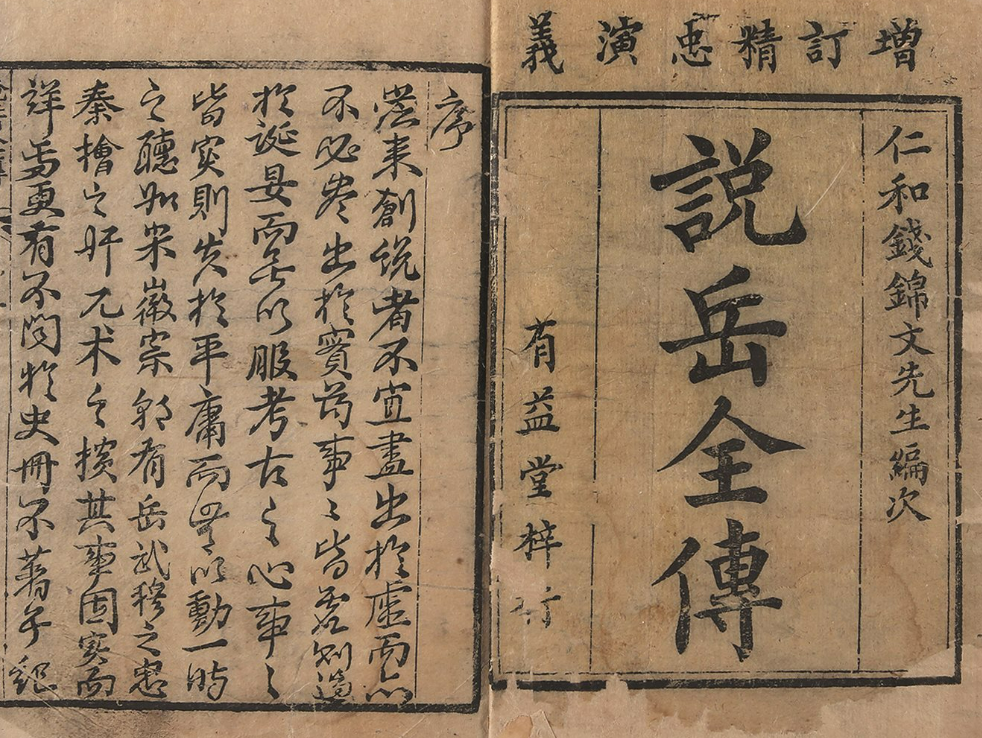 增訂精忠演義
仁和錢錦文先生編次
説岳全傳
有益堂梓行
序
從来創説者不宜盡出於虛而亦
不必盡出於實苟事〻皆虛則過
於誕妄而無以服考古之心事〻
皆实則失於平庸而無以動一時
之聽如宋徽宗朝有岳武穆之忠
秦檜之奸兀术之橫其事固实而
詳焉更有不聞於史冊不著于紀